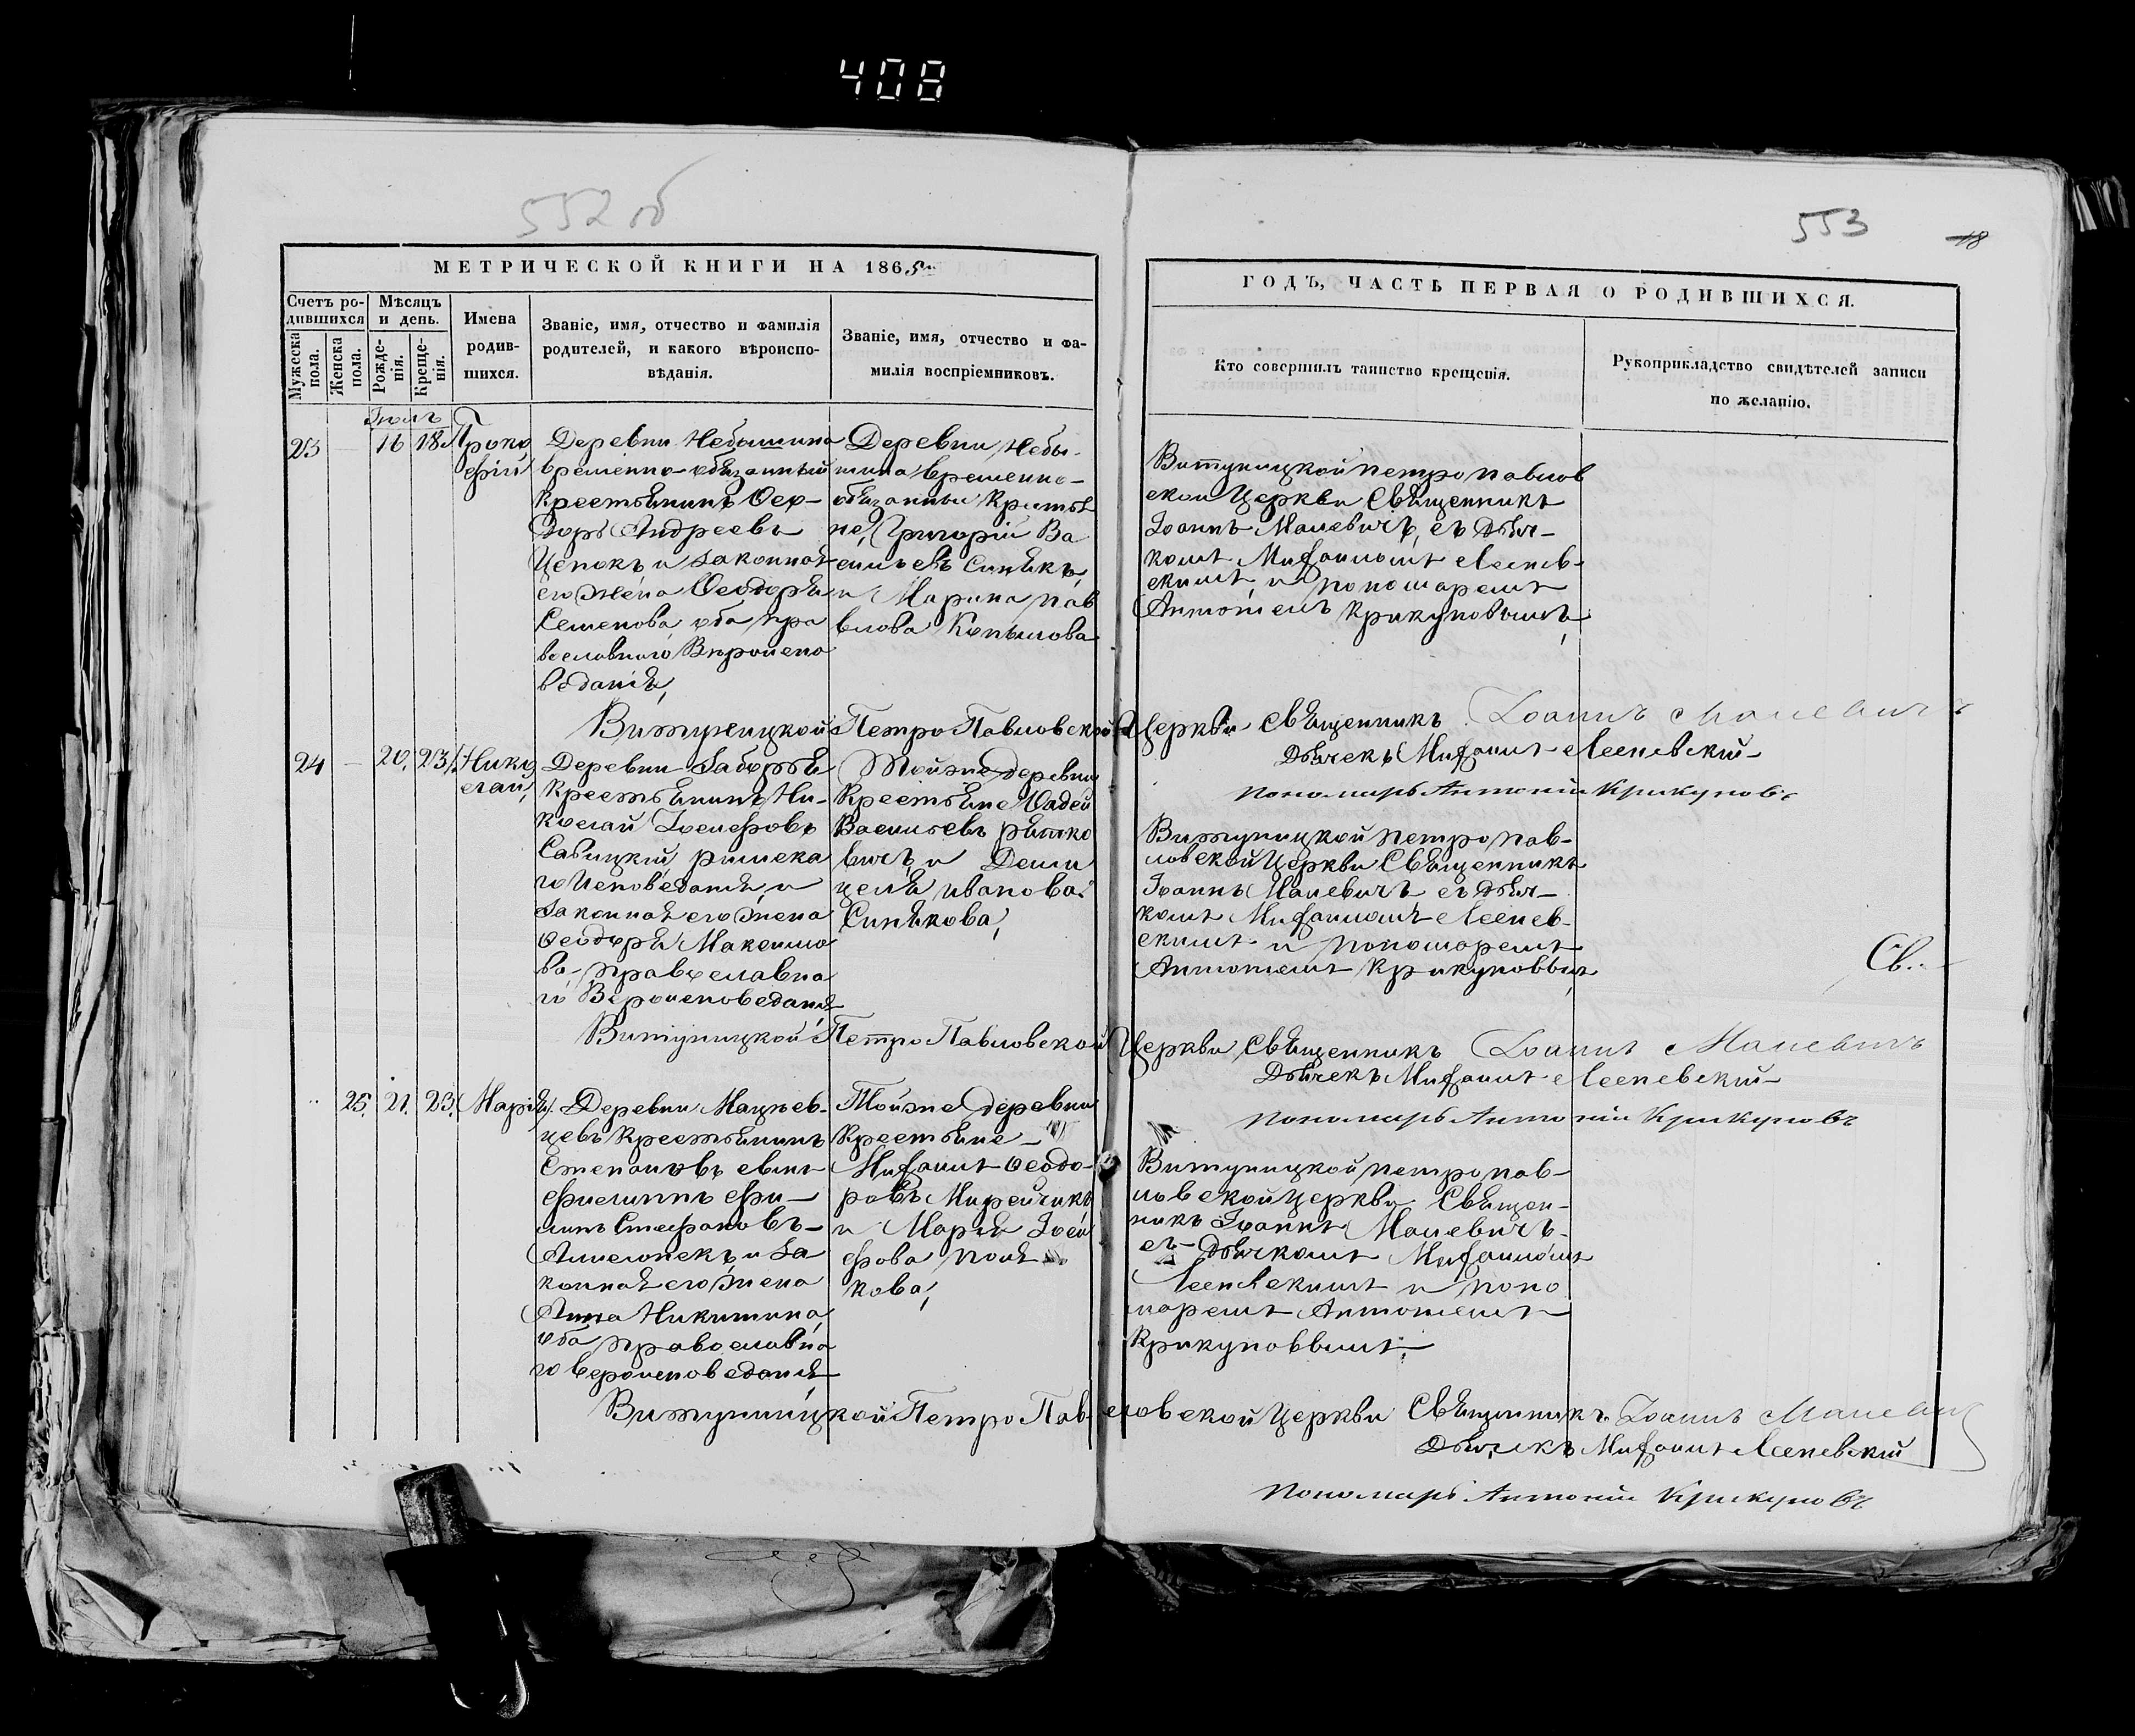 408
552 об
553
18
МЕТРИЧЕСКОЙ КНИГИ НА 1865
ГОДЪ, ЧАСТЬ ПЕРВАЯ О РОДИВШИХСЯ.
Счетъ ро-
дившихся
Мужеска
пола.
Женска
пола.
Мѣсяцъ
и день.
Рожде-
нія.
Креще-
нія.
Имена
родив-
шихся.
Званіе, имя, отчество и фамилія
родителей, и какого вѣроиспо-
вѣданія.
Званіе, имя, отчество и фа-
милія воспріемниковъ.
Кто совершилъ таинство крещенія.
Рукоприкладство свидѣтелей записи
по желанію.
23 — 16 18
Проко
фій
Деревни Небышина
временно-обязанный
Крестьянинъ Ѳео-
доръ Андреевъ
Цепокъ и законная
его жена Ѳеодора
Семенова, оба пра
вославнаго Вѣроиспо
веданія,
Деревни Небы-
шина временно-
обязанныи Крестья
не, Григорій Ва
сильевъ Синякъ,
и Марина Пав
влова Копылова
Витуницкой Петропавлов
ской Церкви Священникъ
Іоаннъ Малевичъ, съ дья-
комъ Михаиломъ Лсепев-
скимъ и пономаремъ
Антоніемъ Крикуновымъ,
Витуницкой Петро Павловской Церкви Священникъ Іоаннъ Малевичъ
Дьячекъ Михаилъ Лсепевскій
Пономарь Антоній Крикуновъ
24 — 20. 23.
Нико
лай,
Деревни Заборья
Крестьянинъ Ни-
колай Іосифовъ
Савицкій римска
го Исповеданія, и
законная его жена
Ѳеодора Максимо
ва- православна
го Вероисповеданія
Тойже деревни
Крестьяне Ѳадей
Васильевъ
вичъ, и Деми
Иванова
Синякова,
Витуницкой Петропав-
ловской Церкви Священникъ
Іоаннъ Малевичъ, съ дья-
комъ Михаиломъ Лсепев-
скимъ и пономаремъ
Антоніемъ Крикуновымъ
Св.
Витуницкой Петро Павловской Церкви Священникъ Іоаннъ Малевичъ
Дьячекъ Михаилъ Лсепевскій
Пономарь Антоній Крикуновъ
25. 21. 23.
Марія,
Деревни Мацъев-
цевъ Крестьянинъ
Степановъ сынъ
Филиппъ Фи-
липъ Стефановъ-
и за
конная его жена
Анна Никитина,
оба православна
го вероисповеданія
Тойже деревни
Крестьяне-
Михаилъ Ѳеодо-
ровъ Мирейчикъ
и Марія Іоси
фова Поля
кова,
Витуницкой Петропав-
ловской Церкви Священ-
никъ Іоаннъ Малевичъ
съ дьячкомъ Михаиломъ
Лсепевскимъ и поно
маремъ Антоніемъ
Крикуновымъ,
Витуницкой Петро Пав-ловской Церкви Священникъ Іоаннъ Малевичъ
Дьячекъ Михаилъ Лсепевскій
Пономарь Антоній Крикуновъ